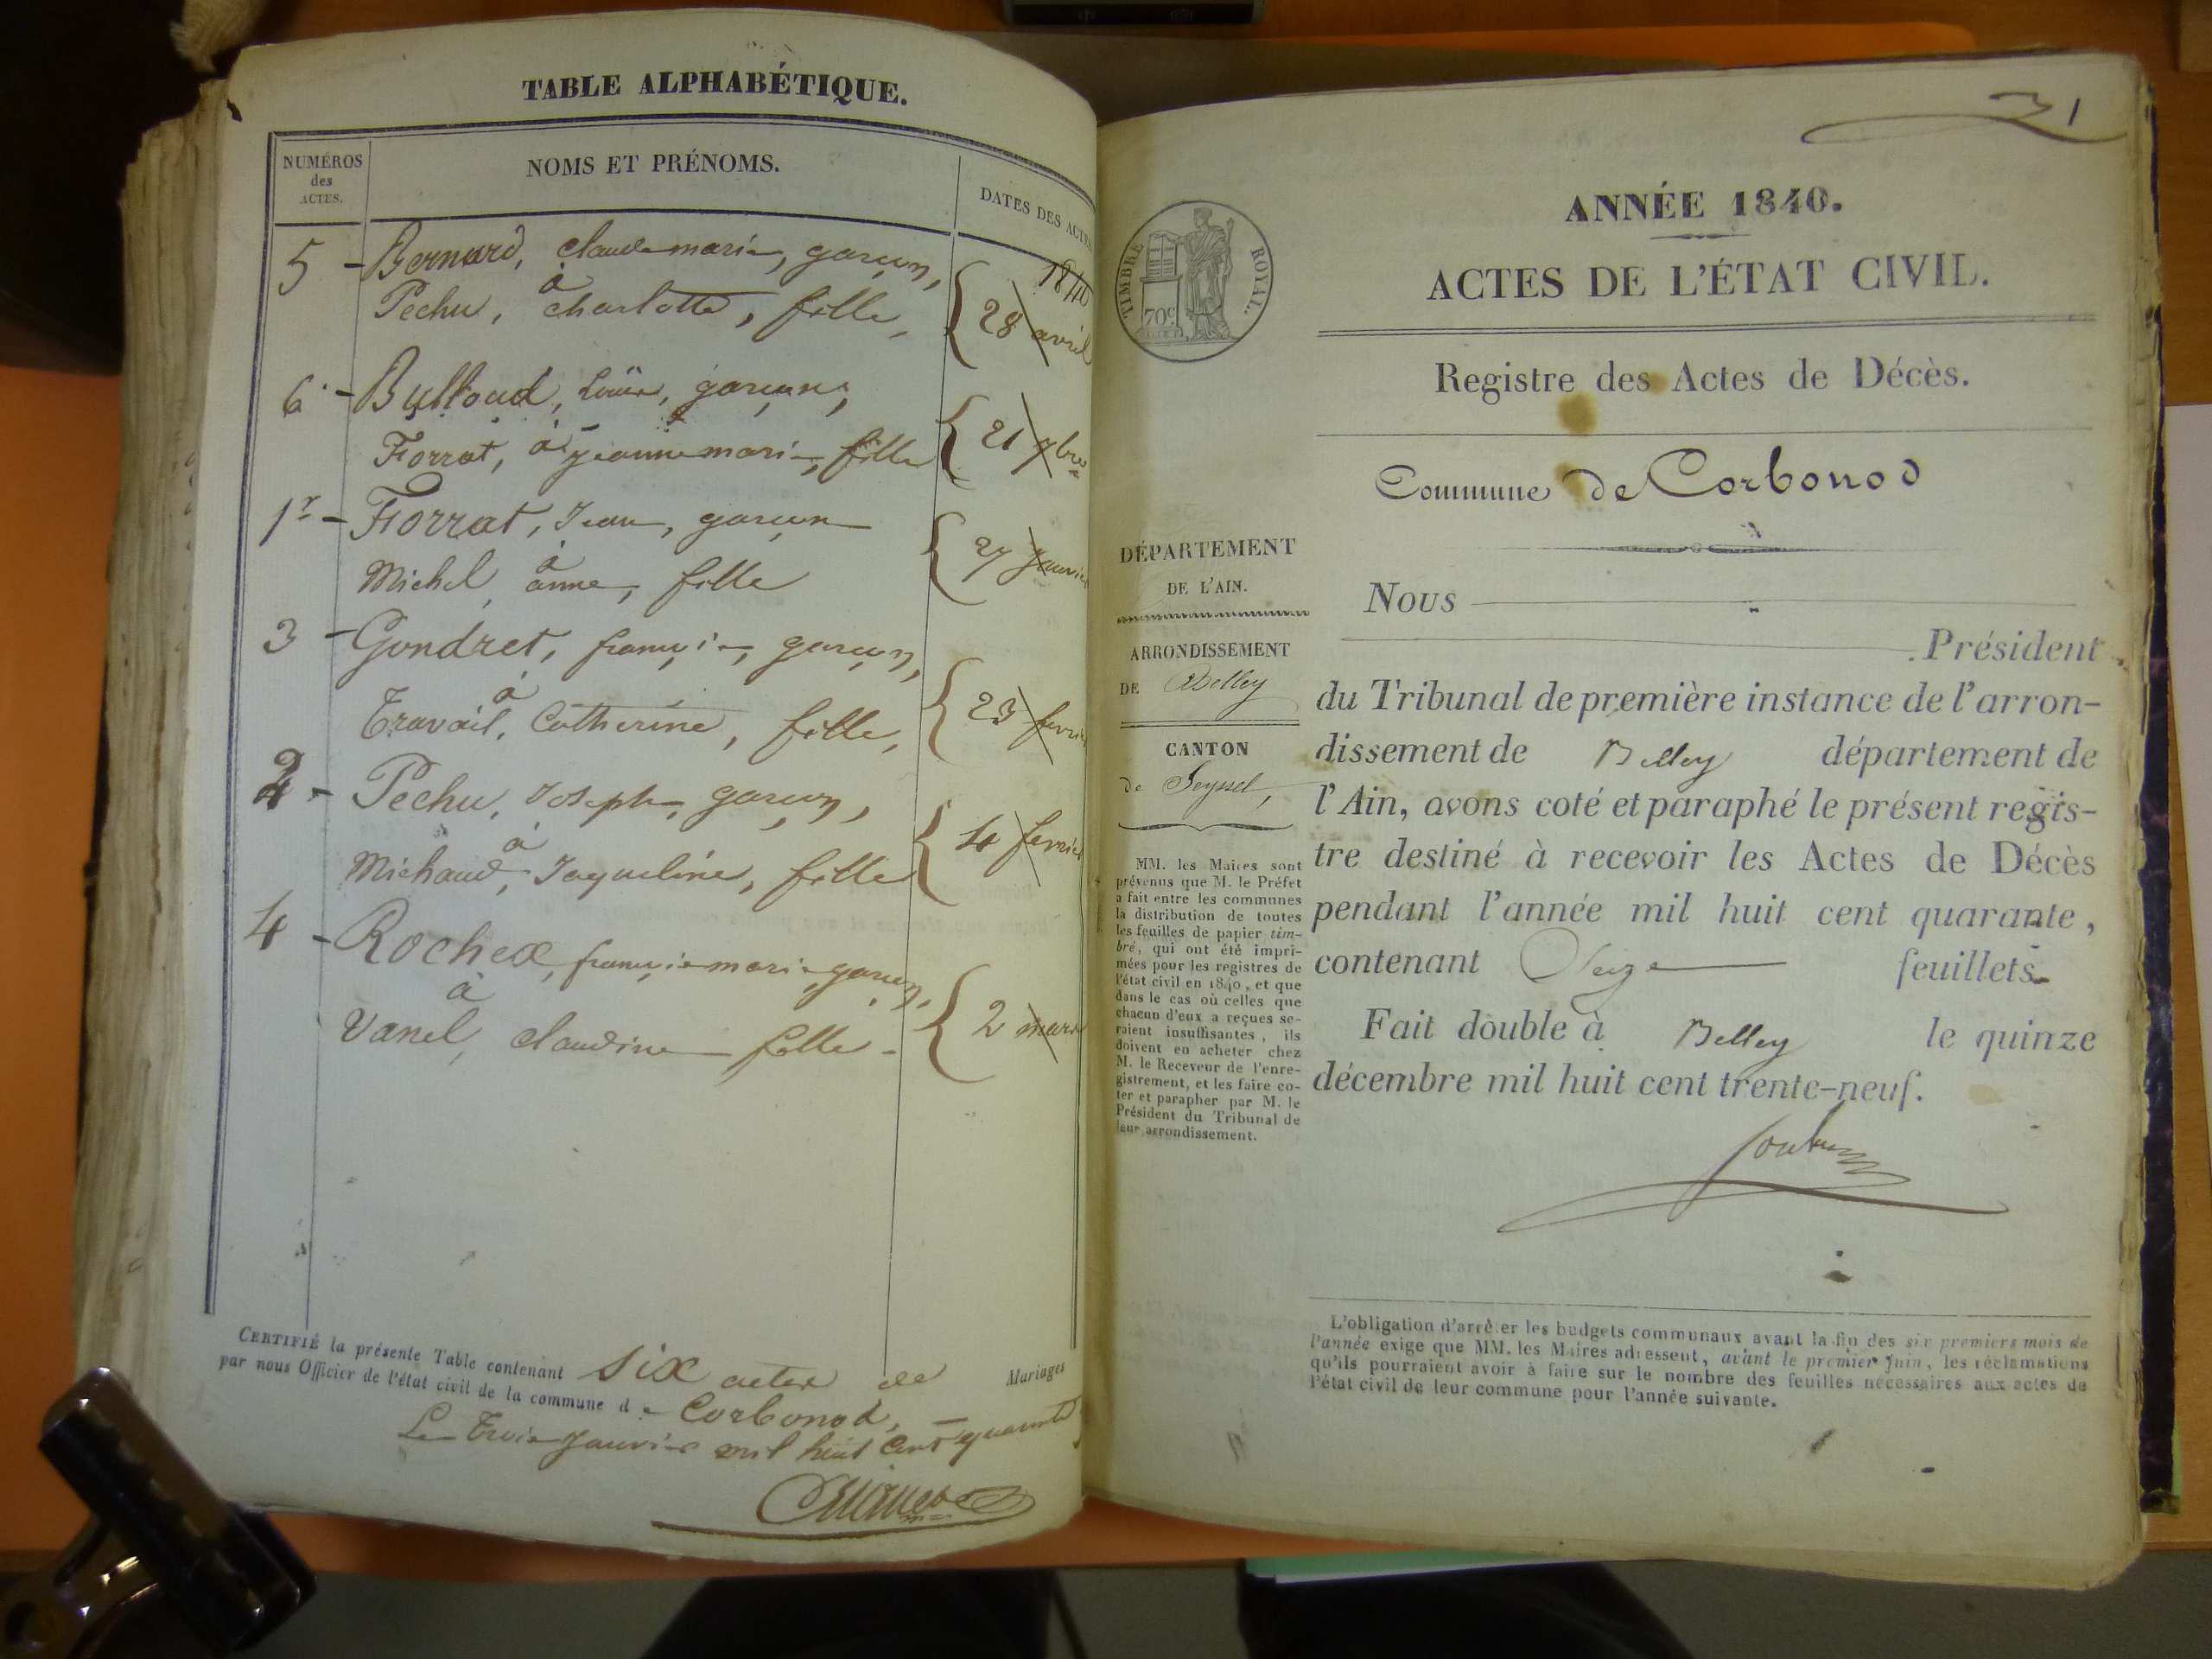 TABLE ALPHABÉTIQUE.
NUMÉROS
des
ACTES.
NOMS ET PRÉNOMS.
DATES DES ACTES
1840
5 - Bernard, claude marie, garçon,
à
Pechu, charlotte, fille,
28 avril
6 - Bulloud, Louis, garçon,
Forrat, à jeanne marie, fille
21 7bre
1r - Forrat, Jean, garçon
à
Michel, anne, fille
27 janvier
3 - Gondret, françois, garçon,
à
Travail, Catherine, fille,
23 fevrier
2 - Pechu, Joseph, garçon,
à
Michaud, Jaqueline, fille
4 fevrier
4 - Rochex, françois marie garçon,
à
Vanel, claudine fille -
2 mars
CERTIFIÉ la présente Table contenant six actes de Mariages
par nous Officier de l'état civil de la commune de Corbonod,
Le Trois janvier mil huit cent quarante
1
ANNÉE 1840.
ACTES DE L'ÉTAT CIVIL.
TIMBRE ROYAL.
70c
Registre des Actes de Décès.
Commune de Corbonod
DÉPARTEMENT
DE L'AIN.
ARRONDISSEMENT
DE Belley
CANTON
de Seyssel,
MM. les Maires sont
prévenus que M. le Préfet
a fait entre les communes
la distribution de toutes
les feuilles de papier tim-
bré, qui ont été impri-
mées pour les registres de
l'état civil en 1840, et que
dans le cas où celles que
chacun d'eux a reçues se-
raient insuffisantes, ils
doivent en acheter chez
M. le Receveur de l'enre-
gistrement, et les faire co-
ter et parapher par M. le
Président du Tribunal de
leur arrondissement.
Nous
Président
du Tribunal de première instance de l'arron-
dissement de Belley département de
l'Ain, avons coté et paraphé le présent regis-
tre destiné à recevoir les Actes de Décès
pendant l'année mil huit cent quarante,
contenant Seize feuillets.
Fait double à Belley le quinze
décembre mil huit cent trente-neuf.
L'obligation d'arrêter les budgets communaux avant la fin des six premiers mois de
l'année exige que MM. les Maires adressent, avant le premier Juin, les réclamations
qu'ils pourraient avoir à faire sur le nombre des feuilles nécessaires aux actes de
l'état civil de leur commune pour l'année suivante.